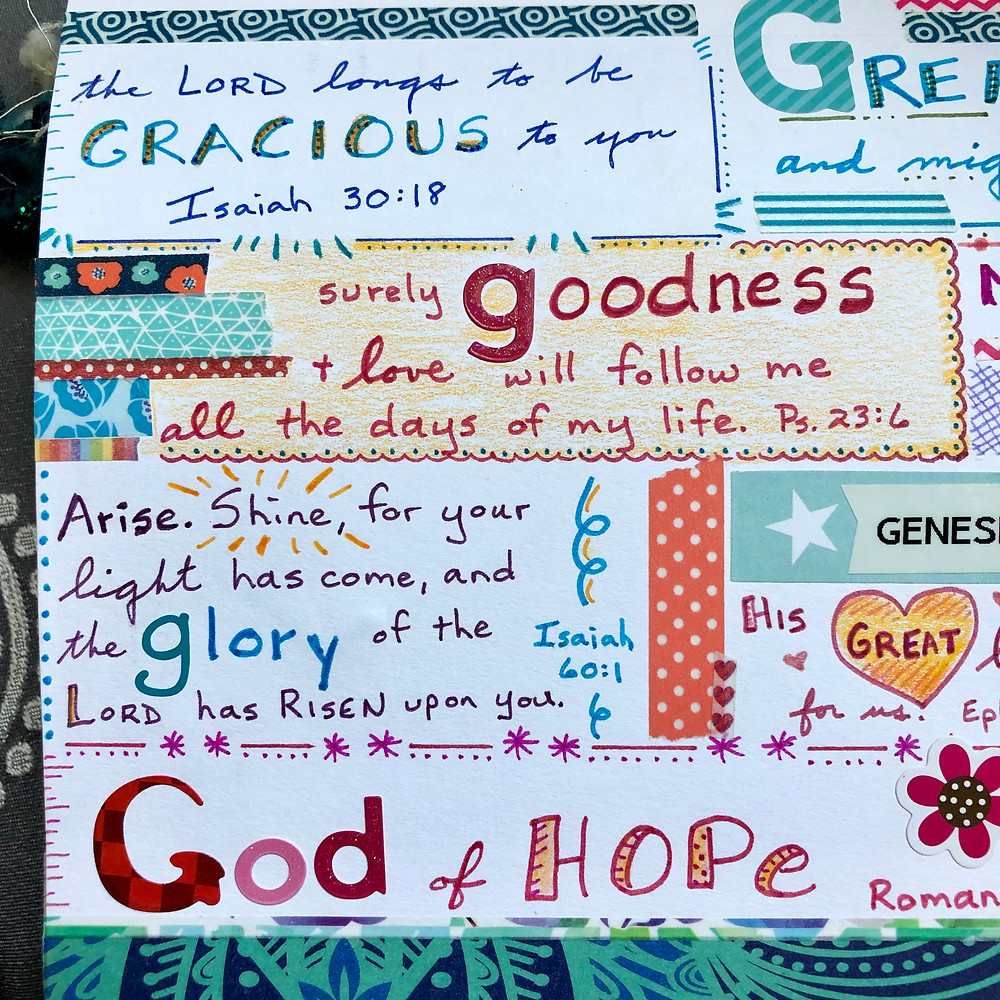 the LORD longs to be
GRACIOUS to you
Isaiah 30:18
GRE
and mig
surely goodness
+ love will follow me
all the days of my life. Ps. 23:6
Arise. Shine, for your
light has come, and
the glory of the
LORD has RISEN upon you.
Isaiah
60:1
GENES
His
GREAT
for us. Ep
God of HOPe
Roman